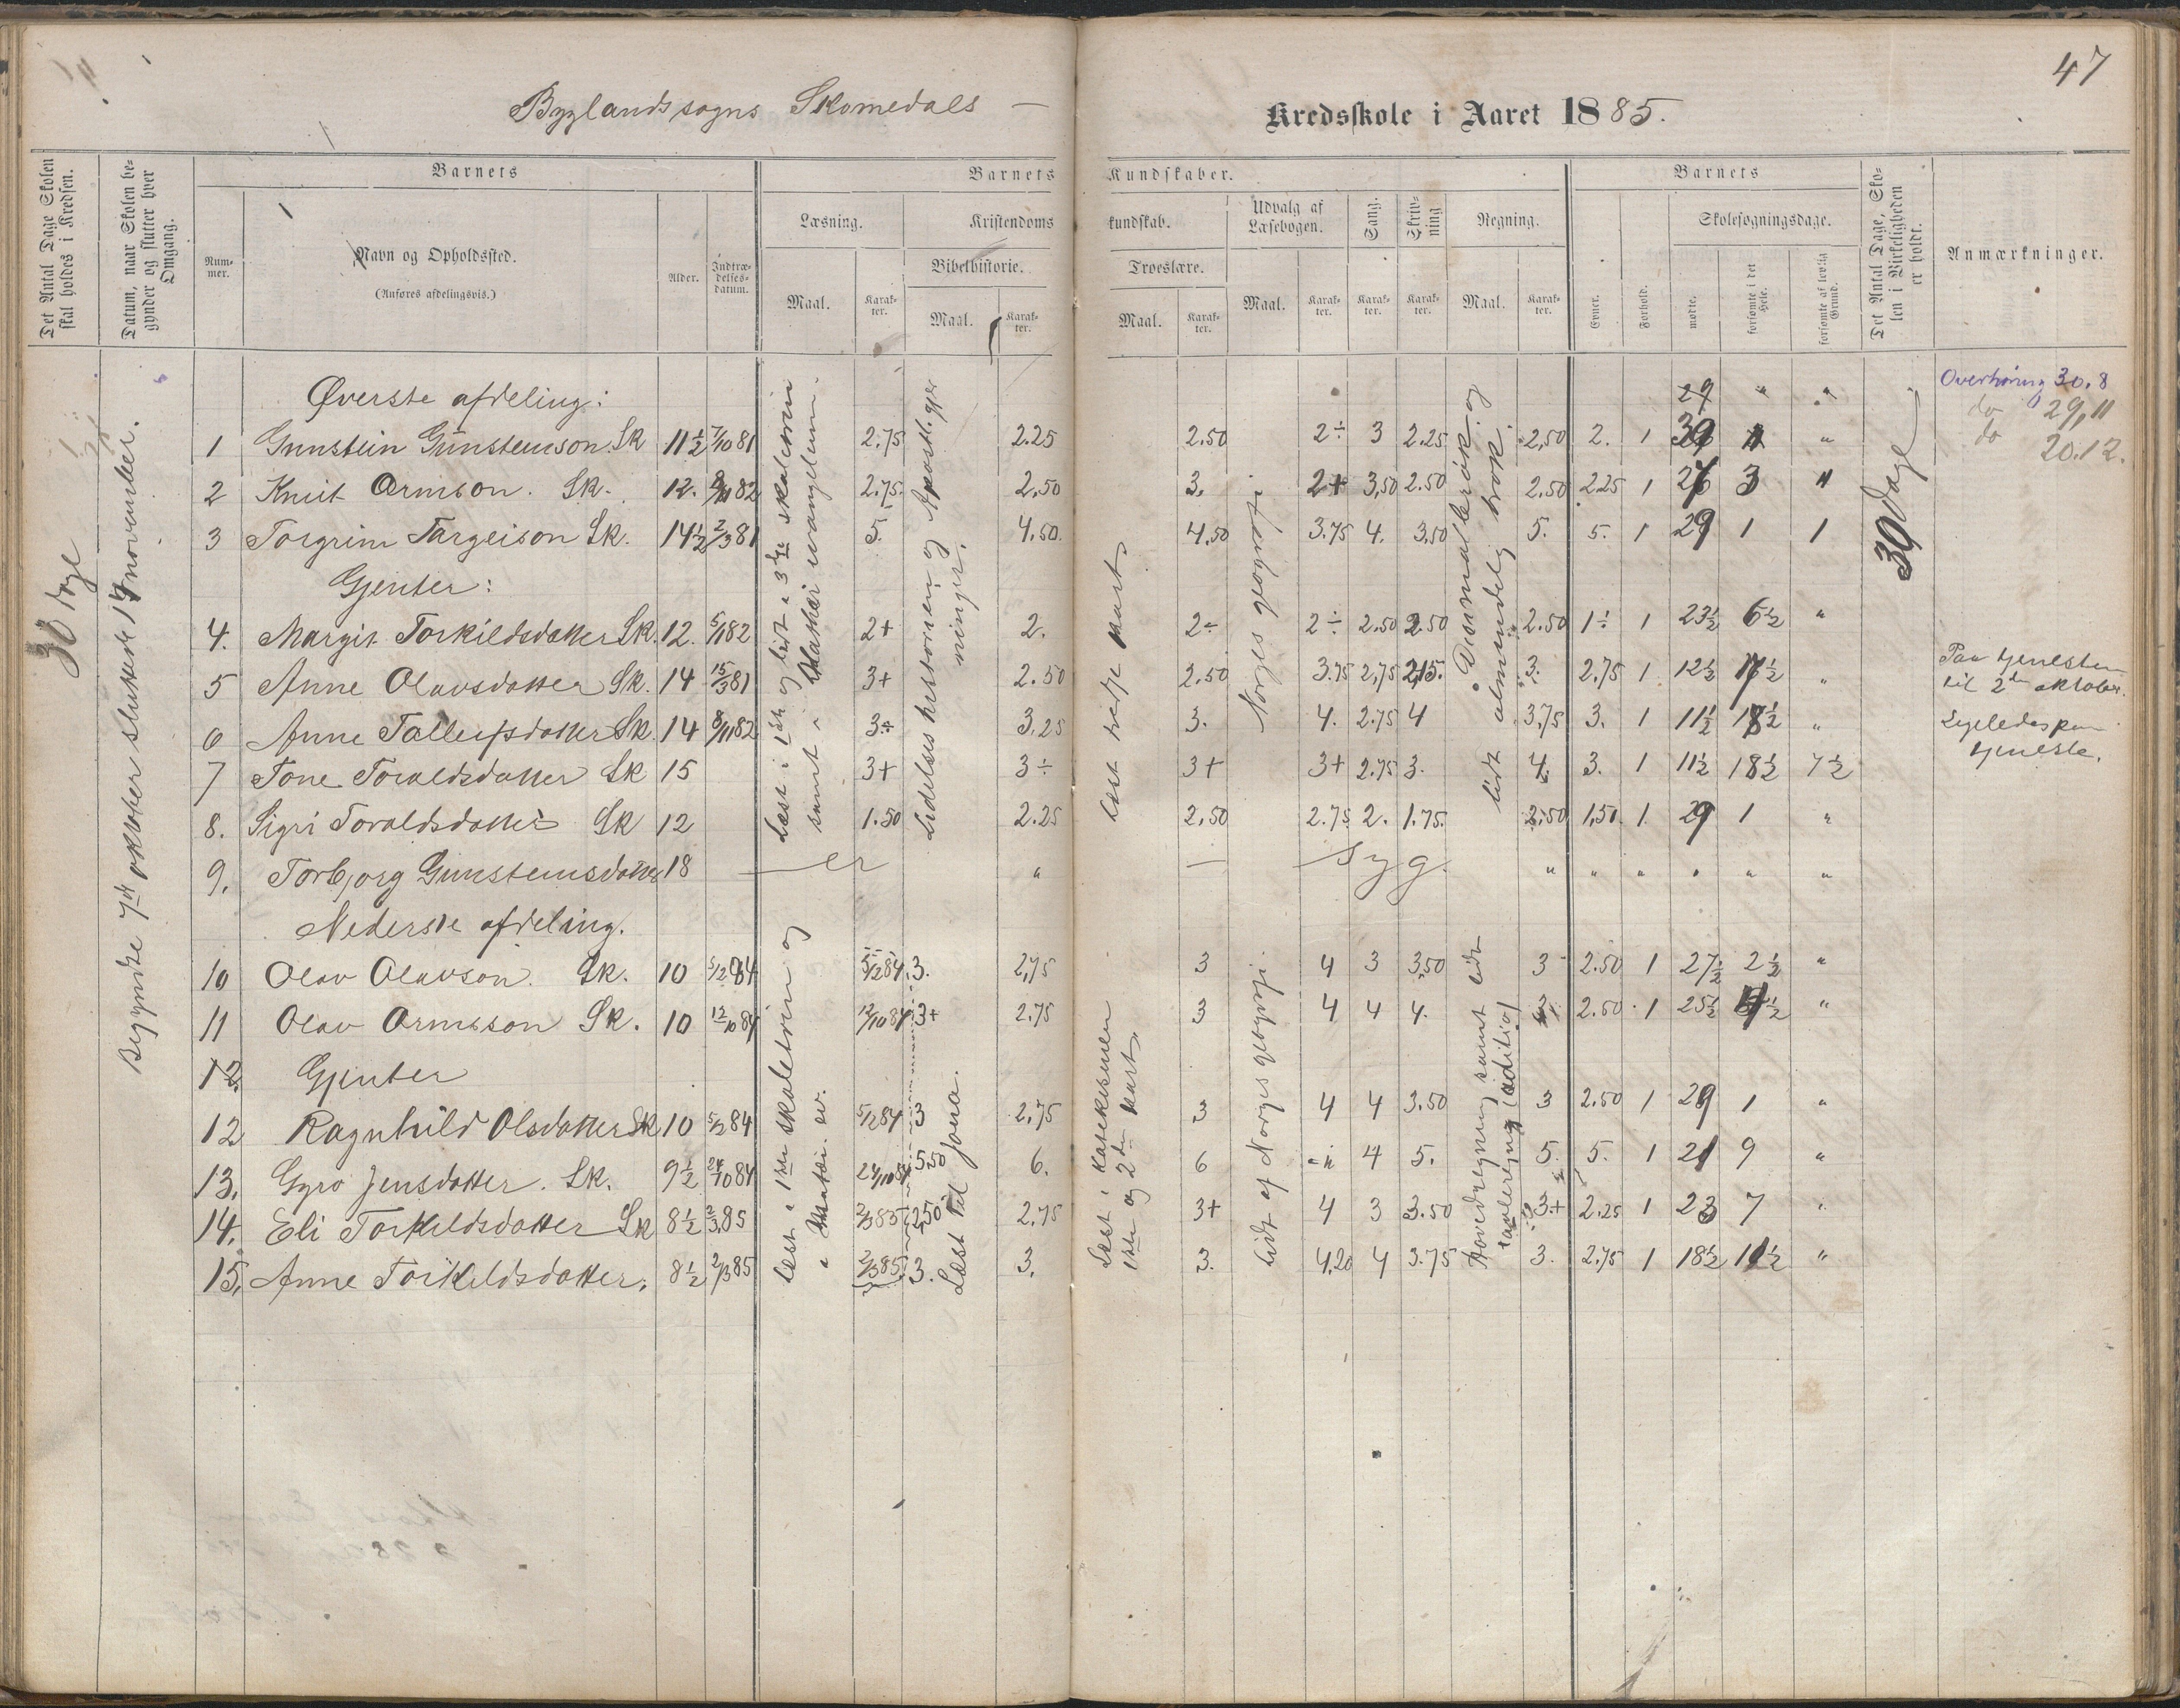 47
Byglands sogns Skomedals — Kredsskole i Aaret 1885.
Det Antal Dage Skolen skal holdes i Kredsen.
Datum, naar Skolen begynder og slutter hver Omgang.
Barnets
Nummer.
Navn og Opholdssted.
(Anføres afdelingsvis.)
Alder.
Indtrædelsesdatum.
Barnets Kundskaber.
Læsning.
Maal.
Karakter.
Kristendomskundskab.
Bibelhistorie.
Maal.
Karakter.
Troeslære.
Maal.
Karakter.
Udvalg af Læsebogen.
Maal.
Karakter.
Sang.
Karakter.
Skrivning
Karakter.
Regning.
Maal.
Karakter.
Barnets
Evner.
Forhold.
Skolesøgningsdage.
mødte.
forsømte i det Hele.
forsømte af lovlig Grund.
Det Antal Dage, Skolen i Virkeligheden er holdt.
Anmærkninger.
30 dage
Begyndte 7de oktober sluttede 14 november.
Øverste afdeling: 29 " "
1 Gunstein Gunsteinson. Sk 11½ 7/10 81 2.75 2.25 2.50 2÷ 3 2.25 2,50 2. 1 "
2 Knut Ormson. Sk. 12. 82 2.75. 2.50 3. 2+ 3,50 2.50 2.50 2.25 1 3 "
3 Torgrim Targeison Sk. 14½ 2/3 81 5. 4.50. 4.50 3.75 4. 3.50 5. 5. 1 29 1 1
Gjenter:
4. Margit Torkildsdatter Sk. 12. 5/1 82 2+ 2. 2÷ 2÷ 2.50 2.50 2.50 1÷ 1 23½ 6½ "
5 Anne Olavsdatter Sk. 14 15/3 81 3+ 2.50 2.50 3.75 2,75 2,15. 3. 2.75 1 12½ 17½ "
6 Anne Tallefsdatter Sk. 14 8/11 82 3÷ 3.25 3. 4. 2.75 4 3.75 3. 1 11½ 18½ "
7 Tone Toraldsdatter Sk 15 3+ 3÷ 3+ 3+ 2.75 3. 4. 3. 1 11½ 18½ 7½
8. Sigri Toraldsdatter Sk 12 1.50 2.25 2,50 2.75 2. 1.75. 2.50 1,50. 1 29 1 "
9. Torbjorg Gunsteinsdatter 18 — er " — syg. " " " " " "
Nederste afdeling.
10 Olav Olavson. Sk. 10 5/12 84 5/12 84. 3. 2,75 3 4 3 3,50 3 2.50 1 27½ 2½ "
11 Olav Ormsson Sk. 10 12/10 84 12/10 84 3+ 2.75 3 4 4 4. 2.50 1 25½ 4½ "
12. Gjenter
12 Ragnhild Olsdatter Sk 10 5/12 84 5/12 84 3 2,75 3 4 4 3.50 3 2.50 1 29 1 "
13. Gyro Jensdatter. Sk. 9½ 24/10 84 24/10 84 5.50 6. 6 4 5. 5. 5. 1 21 9 "
14. Eli Torkildsdatter Sk 8½ 2/3 85 2/3 85 2,50 2,75 3+ 4 3 3.50 3+ 2.25 1 23 7 "
15. Anne Torkildsdatter. 8½ 2/3 85 2/3 85 3. 3. 3. 4,20 4 3.75 3. 2.75 1 18½ 11½ "
Læst i 1ste og lidt i 3dje skaletrin samt i Mathæi evangelium.
Lidelses historien og Apostl. gjerninger.
Læst tredje part
Norges geografi.
Desimalbrøk og lidt almindelig brøk.
30 dage
Læst i 1ste skaletrin og i Matæi ev.
Læst til Jona.
Læst i Katekismen 1ste og 2den part.
Lidt af Norges geografi.
Hovedregning samt lidt tavleregning (adition)
Overhøring 30.8
do 29,11
do 20.12.
Paa tjenesten til 2den oktober.
Ligeledes paa tjeneste.